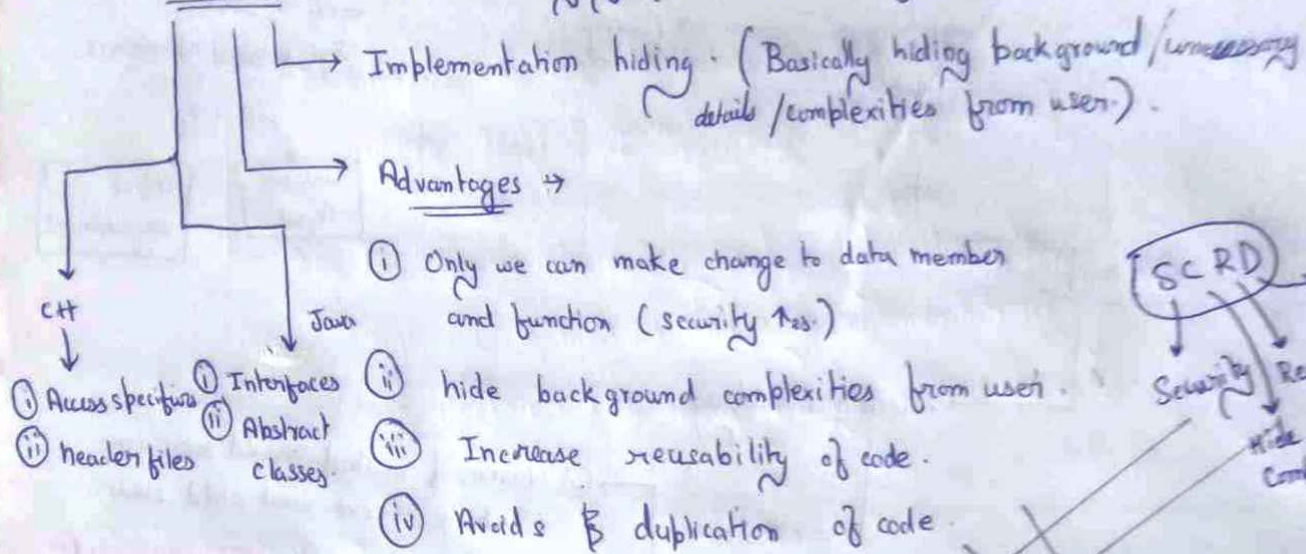 Implementation hiding. (Basically hiding background/unnecessary
details/complexities from user.).
Advantages →
(i) Only we can make change to data member
and function (security ↑es.)
(ii) hide background complexities from user.
(iii) Increase reusability of code.
(iv) Avoids duplication of code.
C++
(i) Access specifiers
(ii) header files
Java
(i) Interfaces
(ii) Abstract
classes.
SCRD
Security
Re
Hide
Com